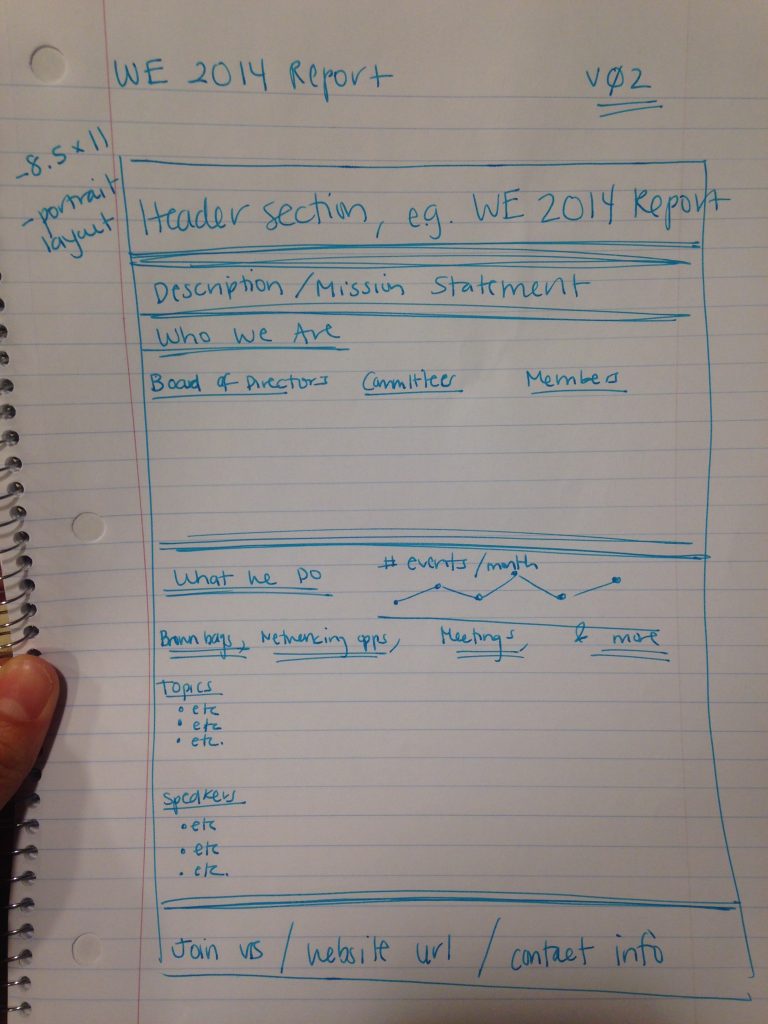 WE 2014 Report
VØ2
- 8.5 x 11
- portrait
layout
Header section, e.g. WE 2014 Report
Description / Mission Statement
Who We Are
Board of Directors Committees Members
What We Do
# events / month
Brown bags, Networking opps, Meetings, & more
Topics
• etc
• etc
• etc.
Speakers
• etc
• etc
• etc.
Join us / website url / contact info